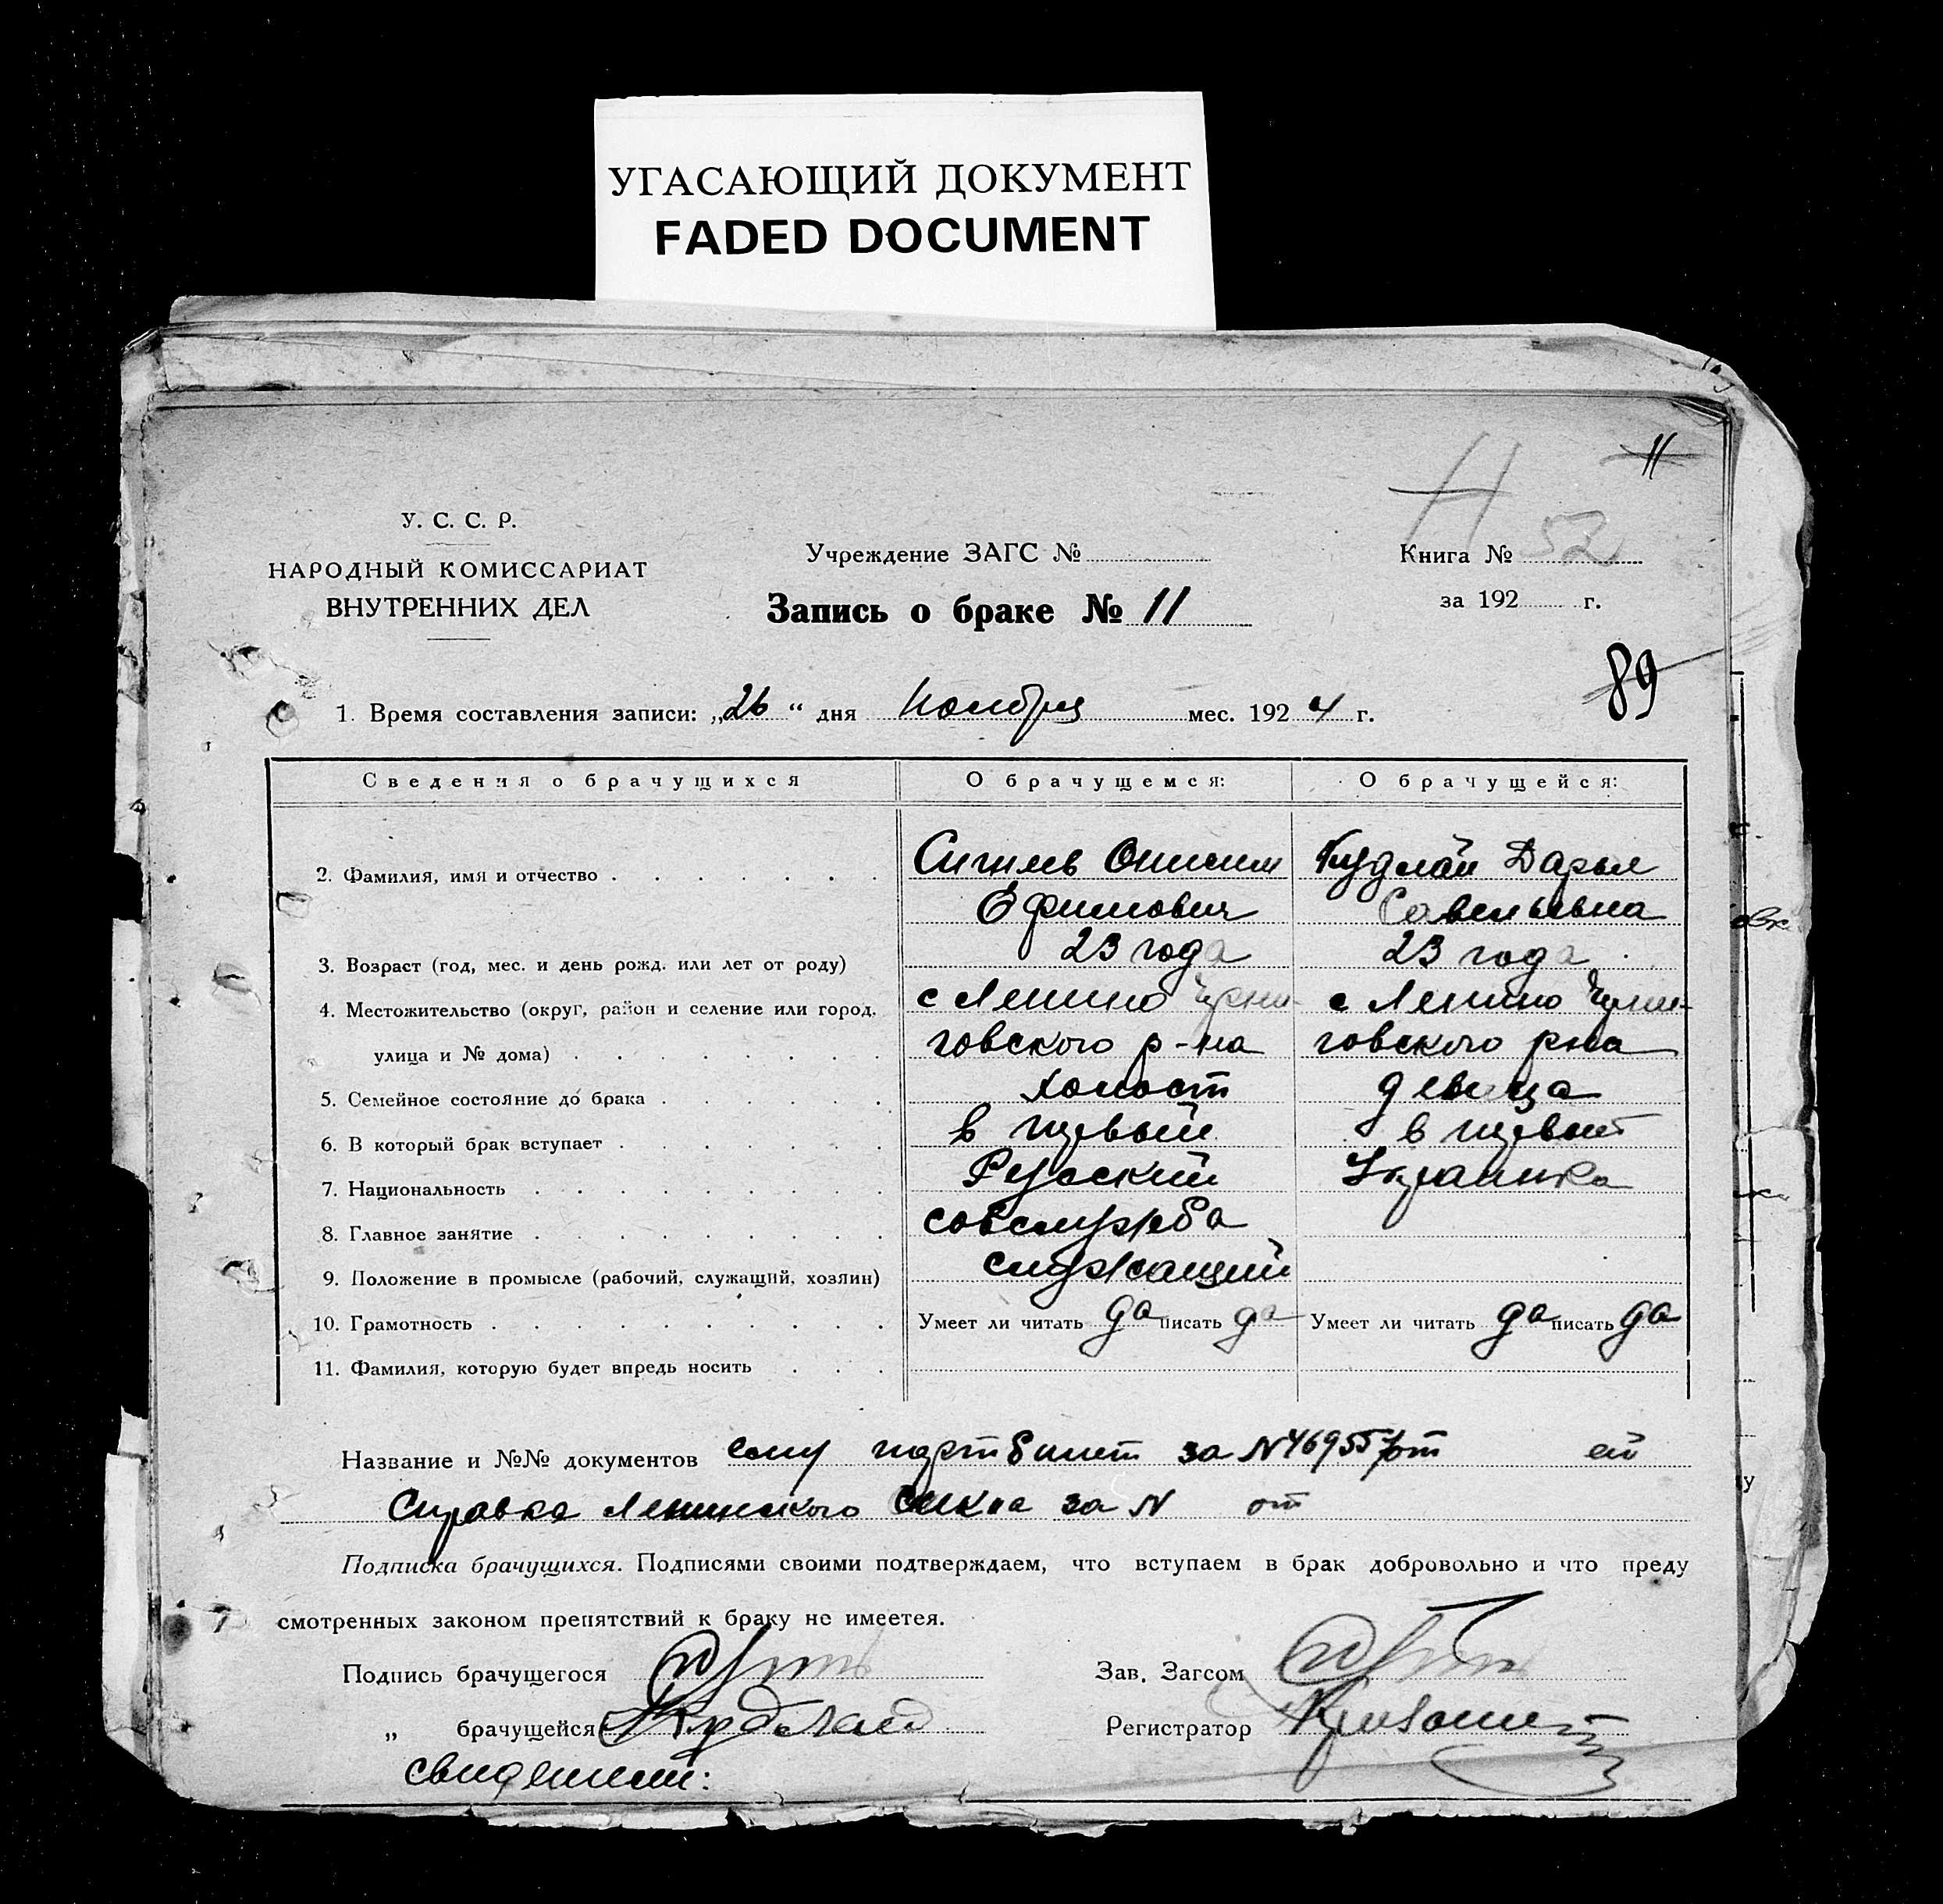 УГАСАЮЩИЙ ДОКУМЕНТ
FADED DOCUMENT
11
У. С. С. Р.
НАРОДНЫЙ КОМИССАРИАТ
ВНУТРЕННИХ ДЕЛ
Учреждение ЗАГС №
Запись о браке № 11
Н
Книга № 52
за 192 г.
89
1. Время составления записи: „26“ дня Ноября мес. 1924 г.
Сведения о брачущихся О брачущемся: О брачущейся:
2. Фамилия, имя и отчество Онисим Кудлай Дарья
Ефимович Савельевна
3. Возраст (год, мес. и день рожд. или лет от роду) 23 года 23 года
4. Местожительство (округ, район и селение или город, с Ленино Черни- с Ленино Черни-
улица и № дома) говского р-на говского рна
5. Семейное состояние до брака холост девица
6. В который брак вступает в первый в первый
7. Национальность Русский Украинка
8. Главное занятие совслужба
9. Положение в промысле (рабочий, служащий, хозяин) служащий
10. Грамотность Умеет ли читать да писать да Умеет ли читать да писать да
11. Фамилия, которую будет впредь носить
Название и №№ документов ему партбилет за N 469557 от ей
Справка Ленинского за N от
Подписка брачущихся. Подписями своими подтверждаем, что вступаем в брак добровольно и что преду
смотренных законом препятствий к браку не имеется.
Подпись брачущегося Зав. Загсом
„ брачущейся Кудлай Регистратор
свидетели: